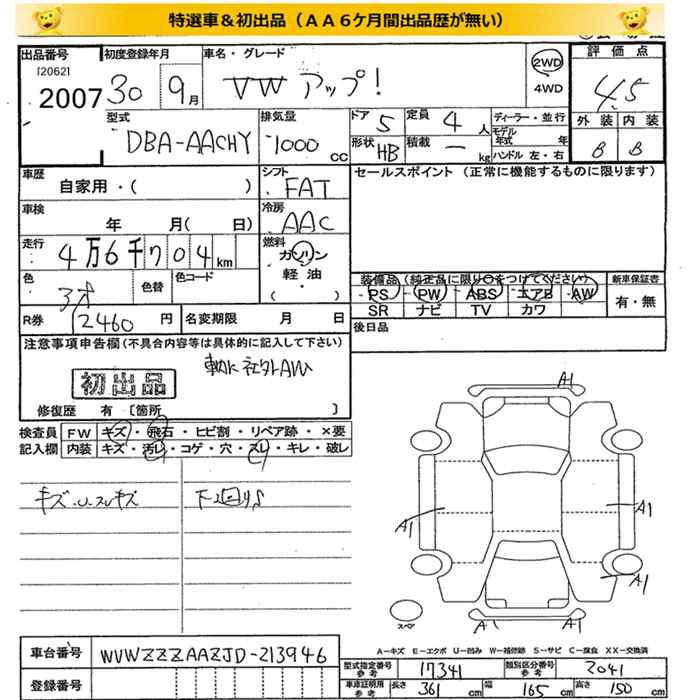 特選車＆初出品（ＡＡ６ケ月間出品歴が無い）
出品番号 初度登録年月 車名・グレード 評価点
120621
2007 30 9月 VW アップ! 2WD 4WD 4.5
型式 排気量 ドア 5 定員 4人 ディーラー・並行 外装 内装
DBA-AACHY 1000cc 形状 HB 積載 ー kg モデル年式 年 ハンドル 左・右 B B
車歴 シフト セールスポイント（正常に機能するものに限ります）
自家用・( ) FAT
車検 冷房
年 月( 日) AAC
走行 燃料
4万6千704km ガソリン
軽・油
( )
色 色替 色コード 装備品（純正品に限り○をつけてください） 新車保証書
PS PW ABS エアB AW 有・無
SR ナビ TV カワ
R券 12460円 名変期限 月 日 後日品
注意事項申告欄(不具合内容等は具体的に記入して下さい)
社外AW
初出品
修復歴 有〔箇所 〕
検査員 FW キズ・飛石・ヒビ割・リペア跡・×要
記入欄 内装 キズ・汚レ・コゲ・穴・スレ・キレ・破レ
キズ・U・スレキズ 下廻りS
A1
A1
A1
A1
A1
スペア
A－キズ E－エクボ U－凹み W－補修跡 S－サビ C－腐食 XX－交換済
車台番号 WVWZZZAAZJD-213946 型式指定番号 参考 17341 類別区分番号 参考 2041
登録番号 車庫証明用 参考 長さ 361cm 幅 165cm 高さ 150cm